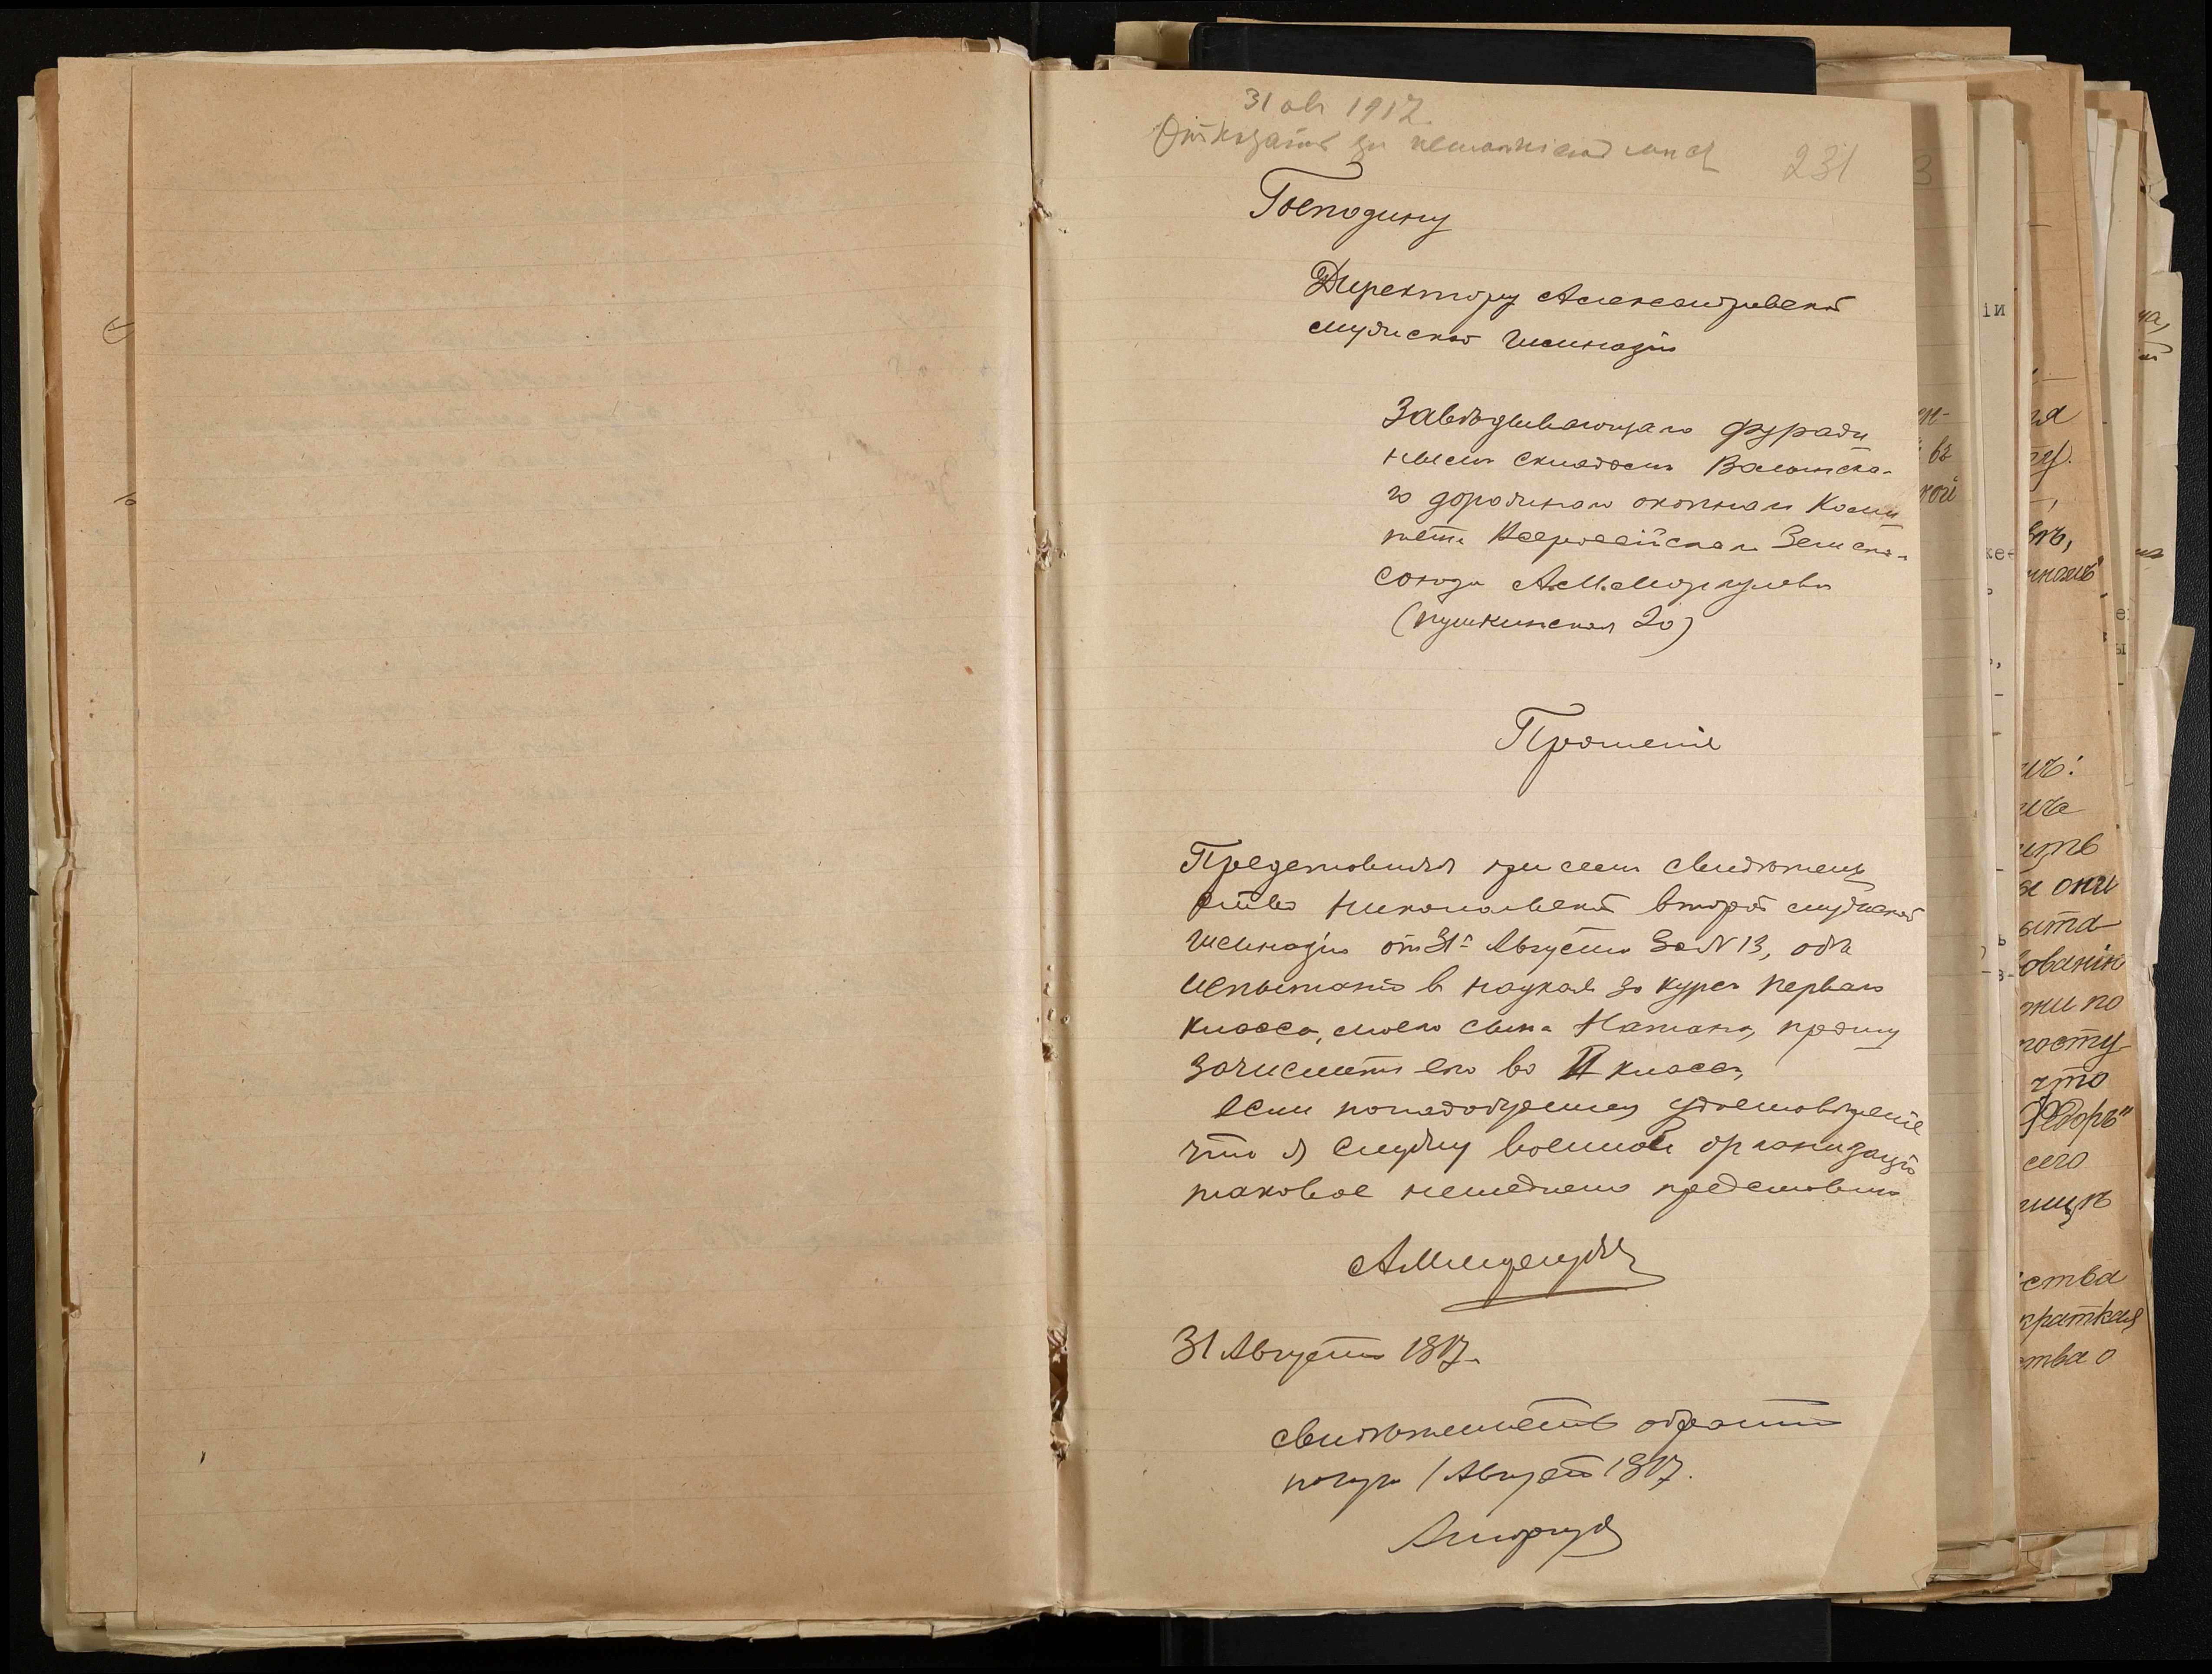 31 авг 1917.
Отказать за неимѣніемъ мѣст
231
Господину
Директору Александровской
мужской гимназіи
Завѣдывающаго фураж
нымъ складомъ Волынска-
го дорожнаго окопнаго Коми
тета Всероссійскаго Земска-
союза А.М. Моргулева
(пушкинская 20)
Прошеніе
Представляя при семъ свидѣтель
ство Николаевской второй мужской
гимназіи от 31го Августа за N 13, объ
испытаніи в наукахъ за курсъ перваго
класса, моего сына Натана, прошу
зачислить его во II классъ,
если понадобится удостовѣреніе
что я служу военной организаціи
таковое немедленно представлю
31 Августа 1917.
свидѣтельство обратно
получ 1 Август 1917.